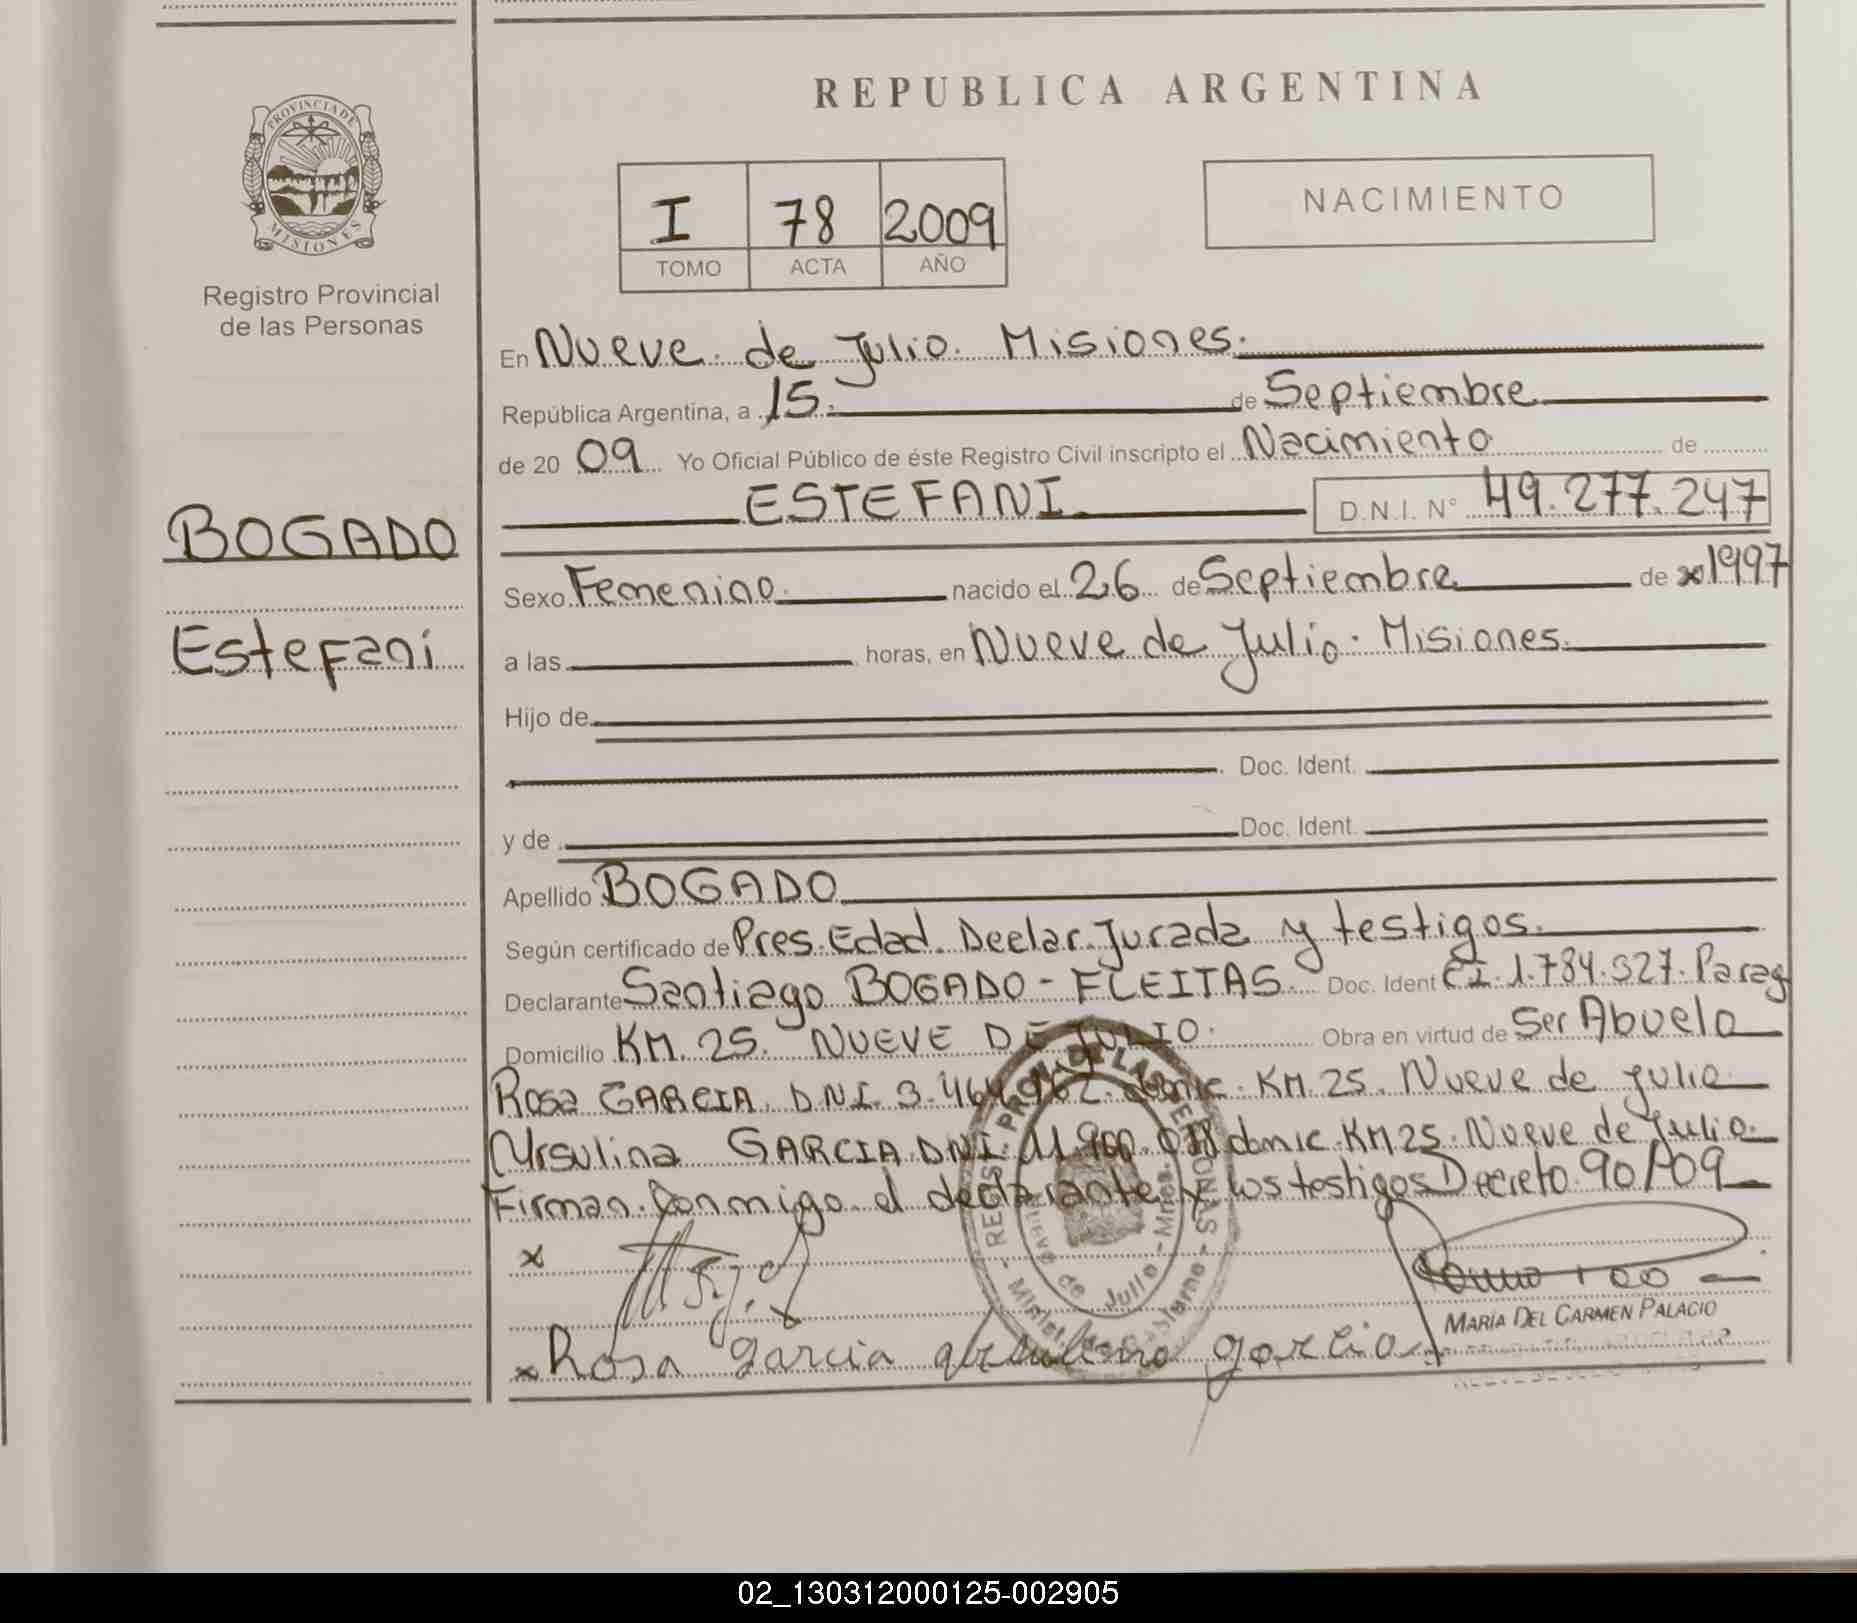 REPUBLICA ARGENTINA
PROVINCIA DE
MISIONES
Registro Provincial
de las Personas
I 78 2009
TOMO ACTA AÑO
NACIMIENTO
BOGADO
Estefani
En Nueve de Julio. Misiones.
República Argentina, a 15. de Septiembre
de 20 09 Yo Oficial Público de éste Registro Civil inscripto el Nacimiento de
ESTEFANI D.N.I. N° 49.277.247
Sexo Femenino nacido el 26 de Septiembre de 1997
a las horas, en Nueve de Julio. Misiones.
Hijo de
Doc. Ident.
y de Doc. Ident.
Apellido BOGADO
Según certificado de Pres. Edad. Declar. Jurada y testigos.
Declarante Santiago BOGADO - FLEITAS. Doc. Ident CI. 1.784.327. Parag
Domicilio KM. 25. NUEVE DE JULIO. Obra en virtud de Ser Abuelo
Rosa GARCIA. DNI. domic. KM. 25. Nueve de Julio
Ursulina GARCIA DNI. domic. KM 25. Nueve de Julio.
Firman Conmigo el declarante y los testigos Decreto 90/09
x
MARIA DEL CARMEN PALACIO
x Rosa garcia garcia
02_130312000125-002905